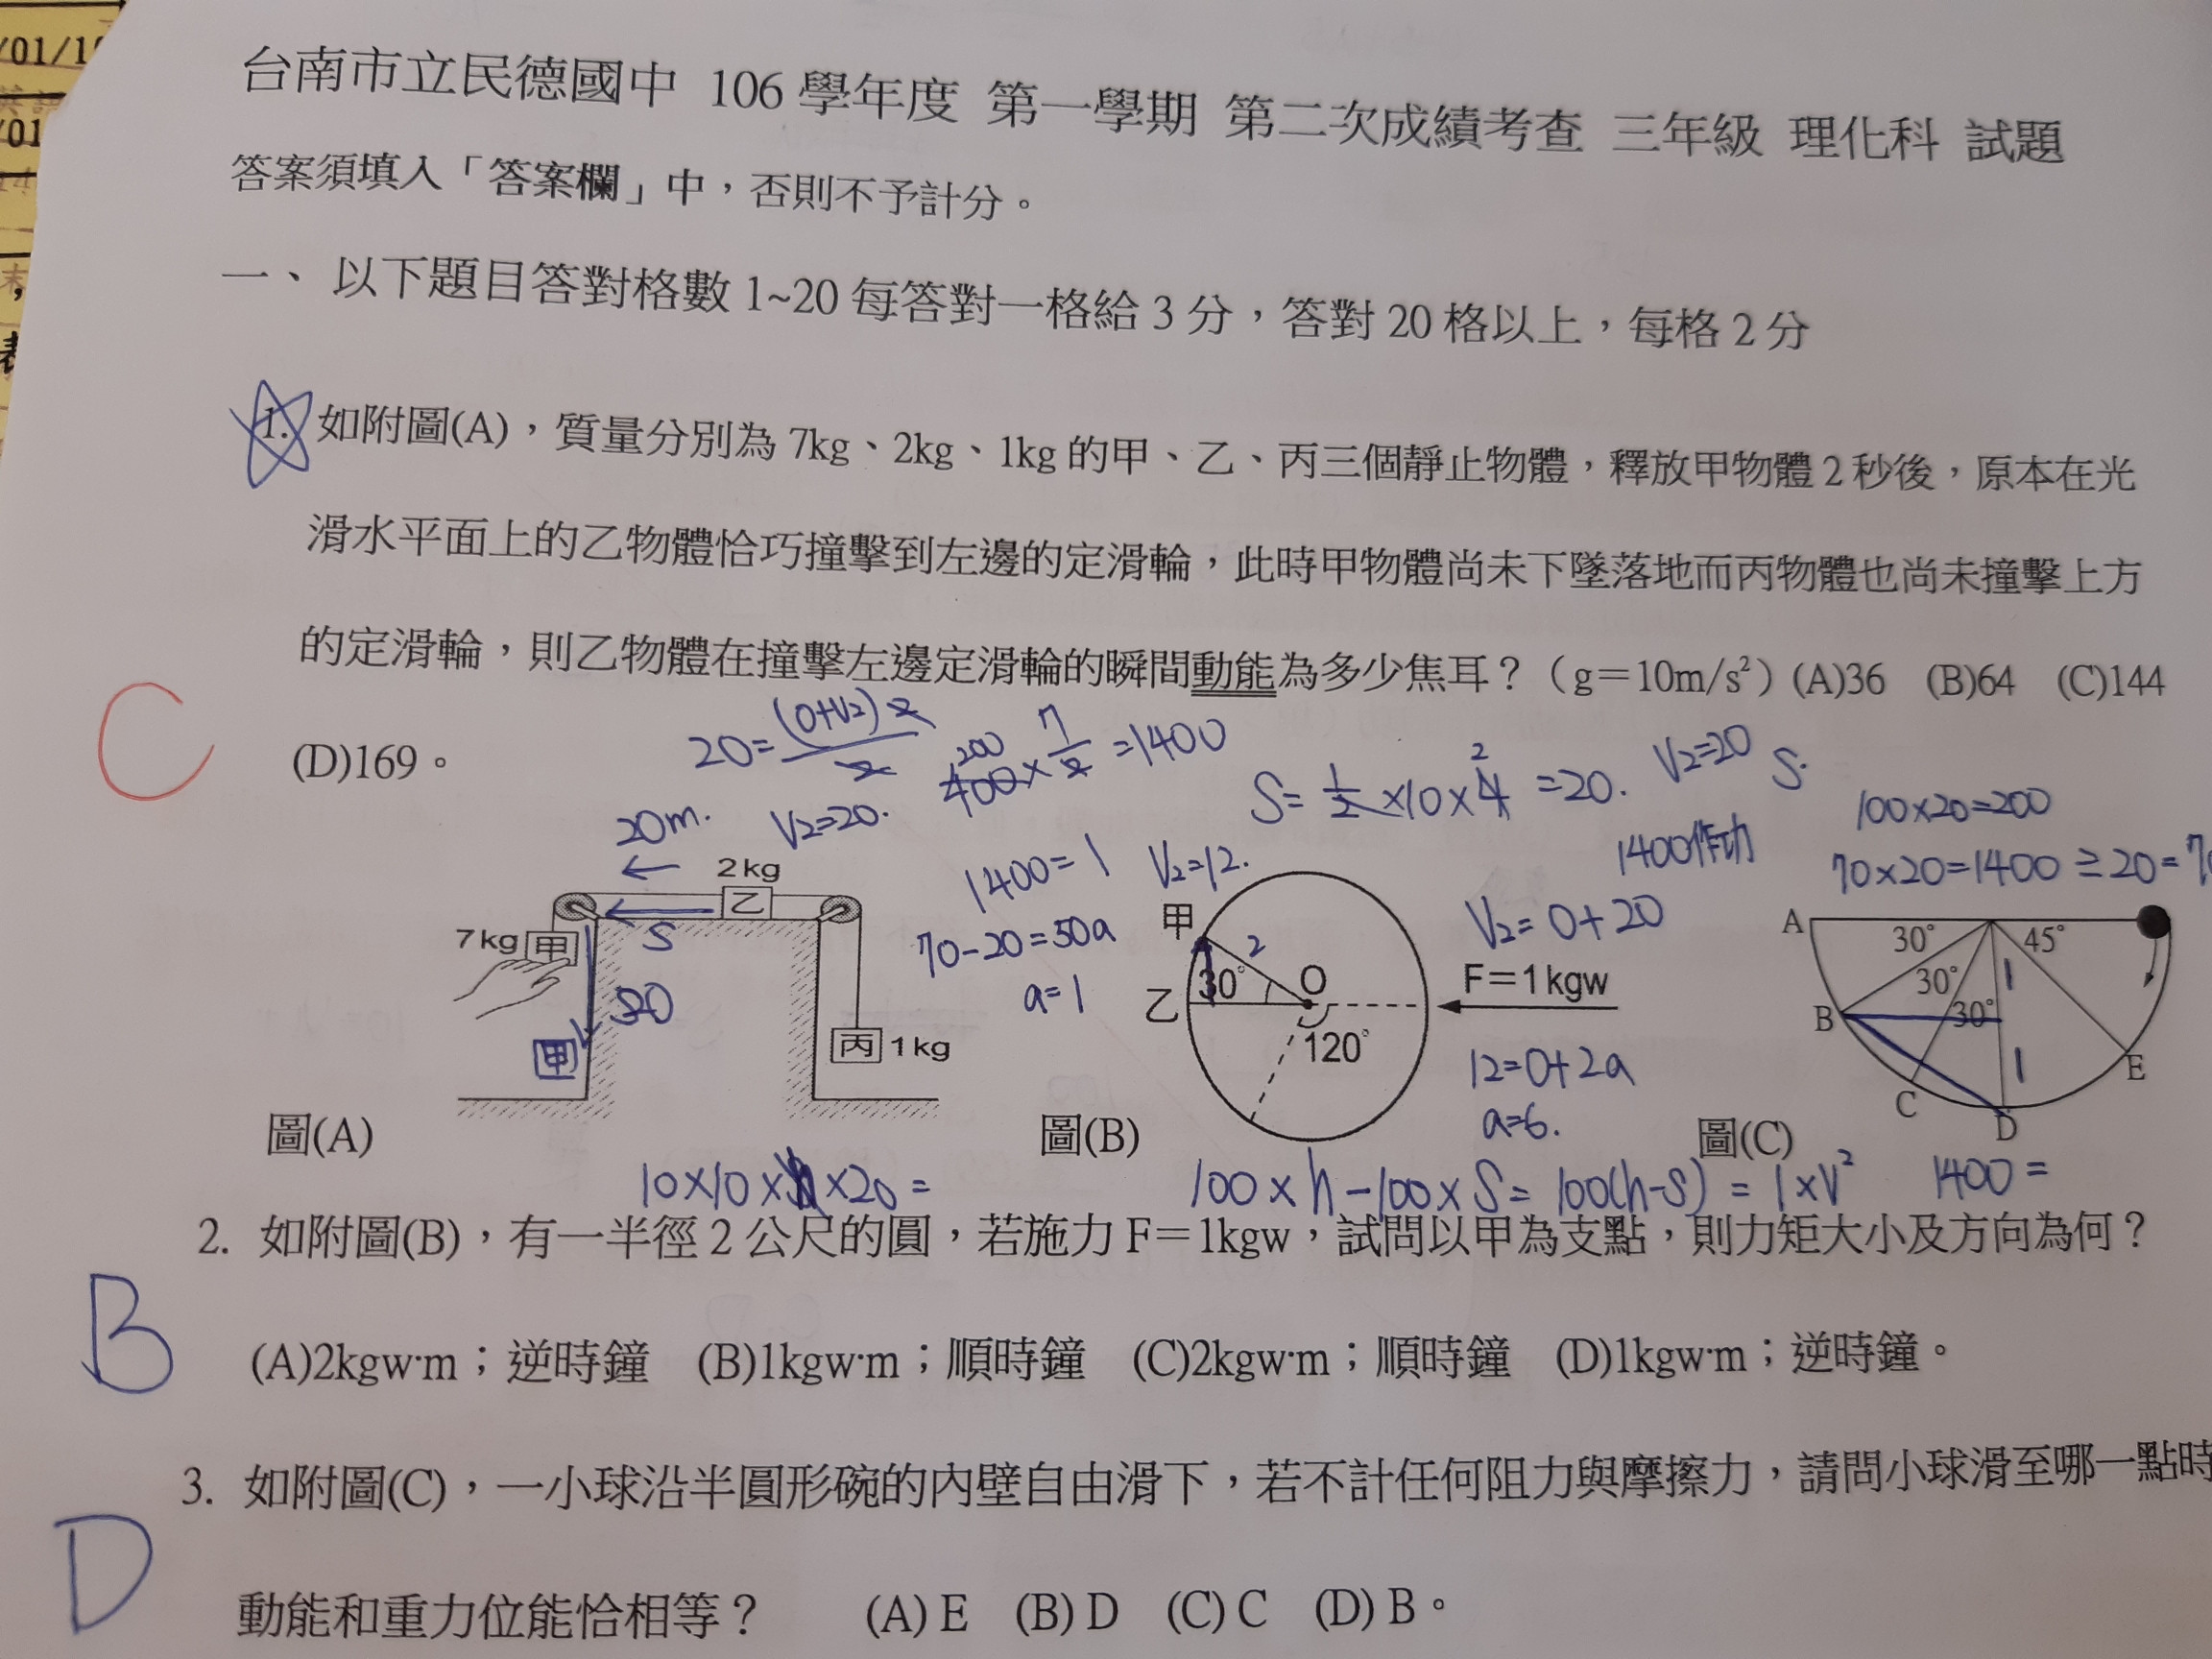 /01/1
/01
台南市立民德國中 106 學年度 第一學期 第二次成績考查 三年級 理化科 試題
答案須填入「答案欄」中，否則不予計分。
一、 以下題目答對格數 1~20 每答對一格給 3 分，答對 20 格以上，每格 2 分
1. 如附圖(A)，質量分別為 7kg、2kg、1kg 的甲、乙、丙三個靜止物體，釋放甲物體 2 秒後，原本在光
滑水平面上的乙物體恰巧撞擊到左邊的定滑輪，此時甲物體尚未下墜落地而丙物體也尚未撞擊上方
的定滑輪，則乙物體在撞擊左邊定滑輪的瞬間動能為多少焦耳？（g＝10m/s²）(A)36 (B)64 (C)144
C
(D)169。
20=(0+V2)2/2
200
400×7/2=1400
S=1/2×10×4 2 =20.
V2=20
S.
20m.
V2=20.
100×20=200
1400作功
70×20=1400
1400=1
V2=12.
70-20=50a
a=1
V2=0+20
12=0+2a
a=6.
2kg
乙
S
7kg 甲
20
甲
丙 1kg
圖(A)
甲
2
30°
O
乙
120°
F＝1kgw
圖(B)
A
30°
45°
30°
30°
1
1
B
C
D
E
圖(C)
10×10× ×20=
100×h-100×S=100(h-S)=1×V²
1400=
2. 如附圖(B)，有一半徑 2 公尺的圓，若施力 F＝1kgw，試問以甲為支點，則力矩大小及方向為何？
B
(A)2kgw·m；逆時鐘 (B)1kgw·m；順時鐘 (C)2kgw·m；順時鐘 (D)1kgw·m；逆時鐘。
3. 如附圖(C)，一小球沿半圓形碗的內壁自由滑下，若不計任何阻力與摩擦力，請問小球滑至哪一點時
D
動能和重力位能恰相等？ (A) E (B) D (C) C (D) B。